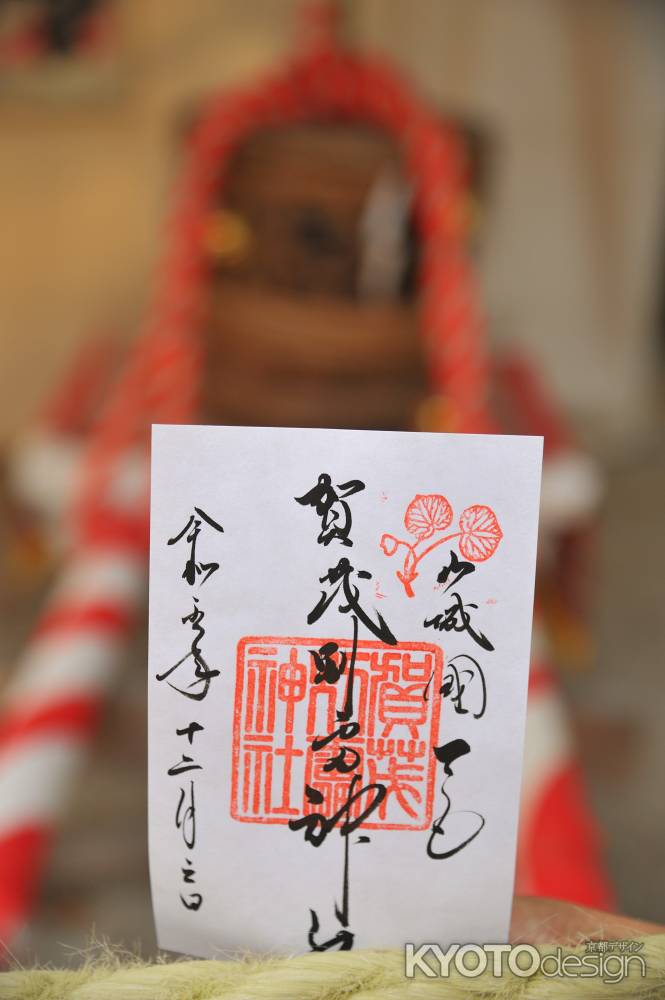 山城國一之宮
賀茂別雷神社
令和五年十二月三日
賀茂
別雷
神社
京都デザイン
KYOTOdesign